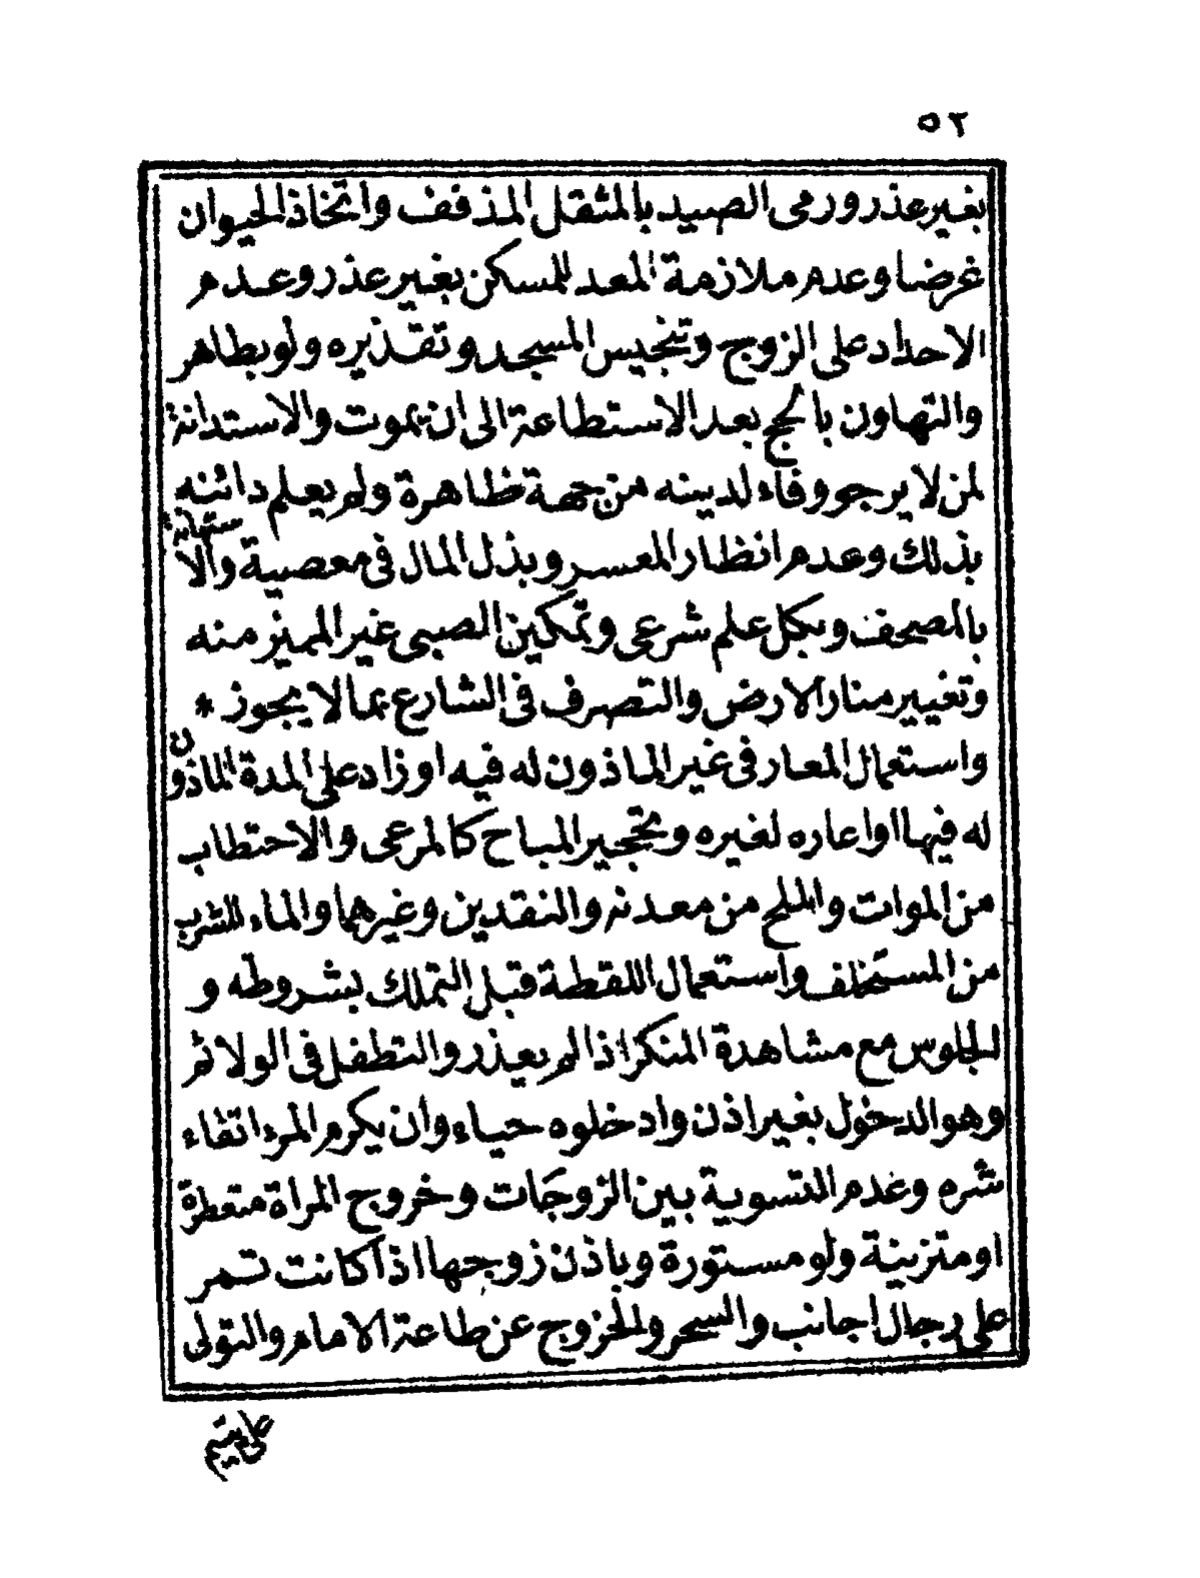 ٥٢
بغير عذر ورمى الصيد بالمثقل المذفف واتخاذ الحيوان
غرضا وعدم ملازمة المعد للمسكن بغير عذر وعدم
الاحداد على الزوج وتنجيس المسجد وتقذيره ولو بطاهر
والتهاون بالحج بعد الاستطاعة الى ان يموت والاستدانة
لمن لا يرجو وفاء لدينه من جهة ظاهرة ولم يعلم دائنه
بذلك وعدم انظار المعسر وبذل المال فى معصية والاستهانة
بالمصحف وبكل علم شرعى وتمكين الصبى غير المميز منه
وتغيير منار الارض والتصرف فى الشارع بما لا يجوز *
واستعمال المعار فى غير الماذون له فيه او زاد على المدة الماذون
له فيها او اعاره لغيره وتحجير المباح كالمرعى والاحتطاب
من الموات والملح من معدنه والنقدين وغيرهما والماء للشرب
من المستخلف واستعمال اللقطة قبل التملك بشروطه و
الجلوس مع مشاهدة المنكر اذا لم يعذر والتطفل فى الولائم
وهو الدخول بغير اذن وادخلوه حياء وان يكرم المرء اتقاء
شره وعدم التسوية بين الزوجات وخروج المراة متعطرة
او متزينة ولو مستورة وباذن زوجها اذا كانت تمر
على رجال اجانب والسحر والخروج عن طاعة الامام والتولى
على يتيم